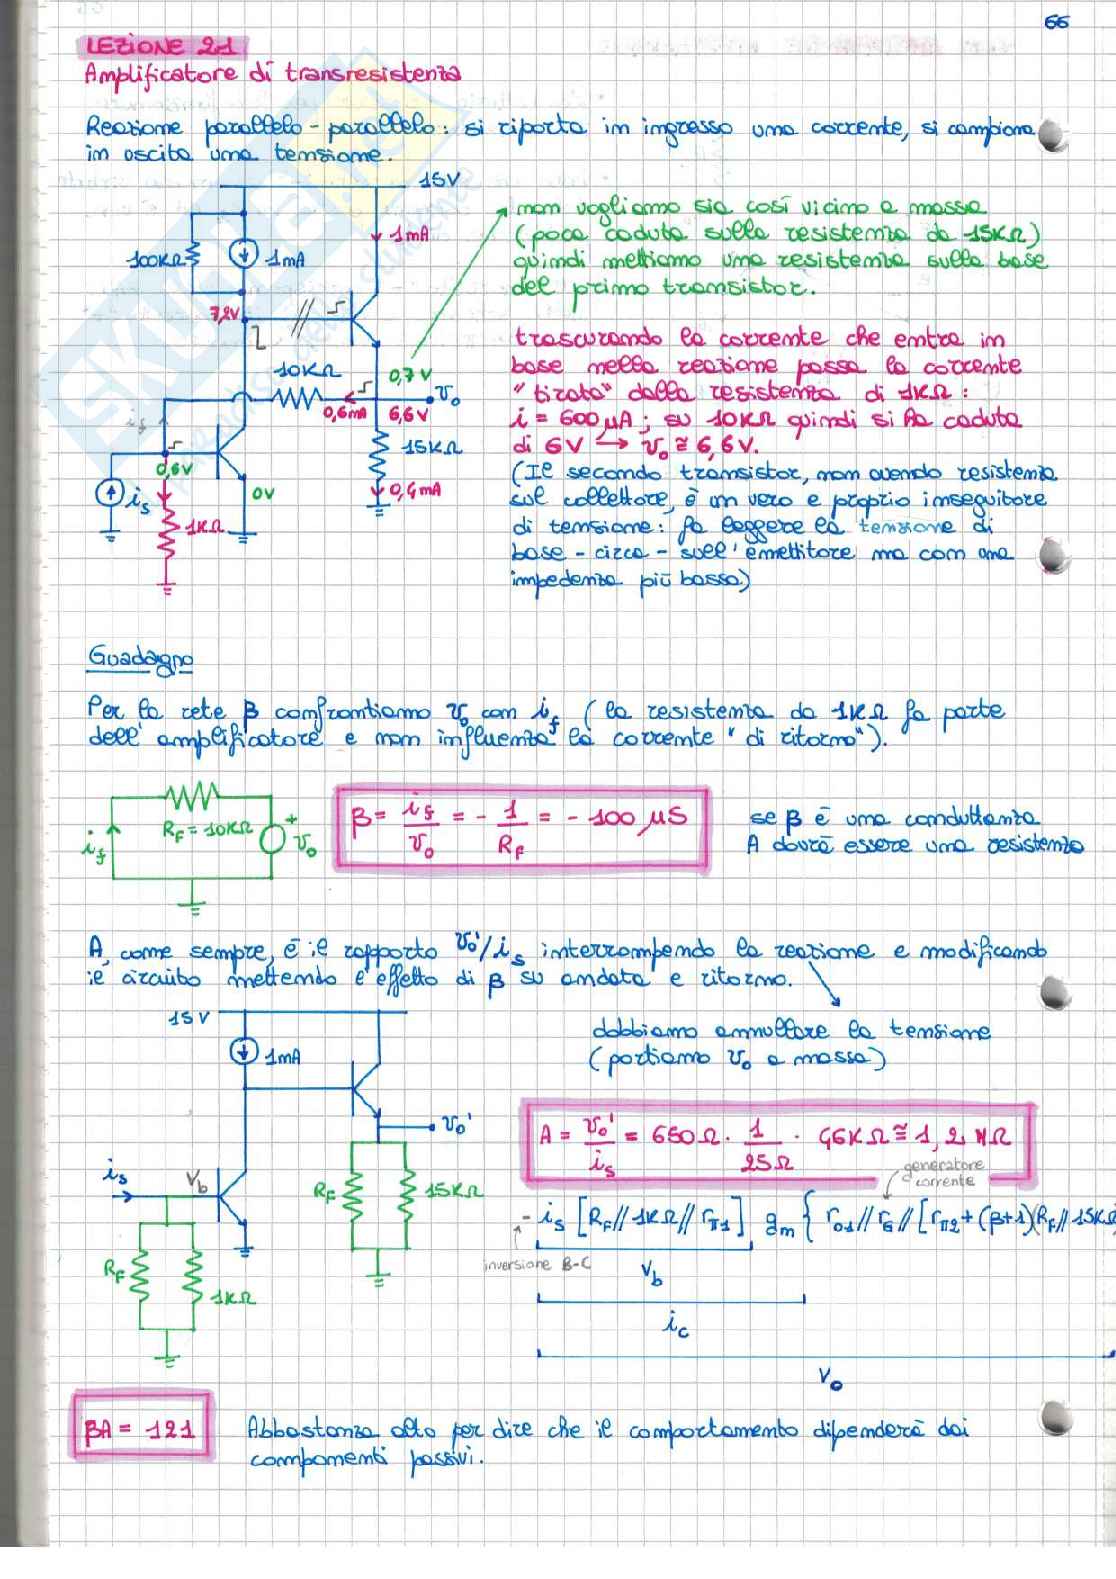 66
LEZIONE 21
Amplificatore di transresistenza
Reazione parallelo-parallelo: si riporta in ingresso una corrente, si campiona
in uscita una tensione.
15V
100KΩ
1mA
1mA
7,2V
10KΩ
0,7V
0,6mA
6,6V
v₀
15KΩ
0,4mA
i_f
0,6V
0V
i_s
1KΩ
non vogliamo sia così vicino a massa
(poca caduta sulla resistenza da 15KΩ)
quindi mettiamo una resistenza sulla base
del primo transistor.
trascurando la corrente che entra in
base nella reazione passa la corrente
"tirata" dalla resistenza di 1KΩ:
i = 600μA; su 10KΩ quindi si ha caduta
di 6V → v₀ ≅ 6,6V.
(Il secondo transistor, non avendo resistenza
sul collettore, è un vero e proprio inseguitore
di tensione: fa leggere la tensione di
base - circa - sull'emettitore ma con una
impedenza più bassa)
Guadagno
Per la rete β confrontiamo v₀ con i_f (la resistenza da 1KΩ fa parte
dell'amplificatore e non influenza la corrente "di ritorno").
i_f
R_F = 10KΩ
+
v₀
β = i_f/v₀ = - 1/R_F = - 100 μS
se β è una conduttanza
A dovrà essere una resistenza
A, come sempre, è il rapporto v₀'/i_s interrompendo la reazione e modificando
il circuito mettendo l'effetto di β su andata e ritorno.
dobbiamo annullare la tensione
(portiamo v₀ a massa)
15V
1mA
v₀'
i_s
V_b
R_F
15KΩ
R_F
1KΩ
A = v₀'/i_s = 650Ω · 1/25Ω · 46KΩ ≅ 1,2 MΩ
generatore
corrente
- i_s [R_F // 1KΩ // r_π1] g_m { r_01 // r_G // [r_π2 + (β+1)(R_F // 15KΩ
inversione B-C
V_b
i_c
V₀
βA = 121
Abbastanza alto per dire che il comportamento dipenderà dai
componenti passivi.